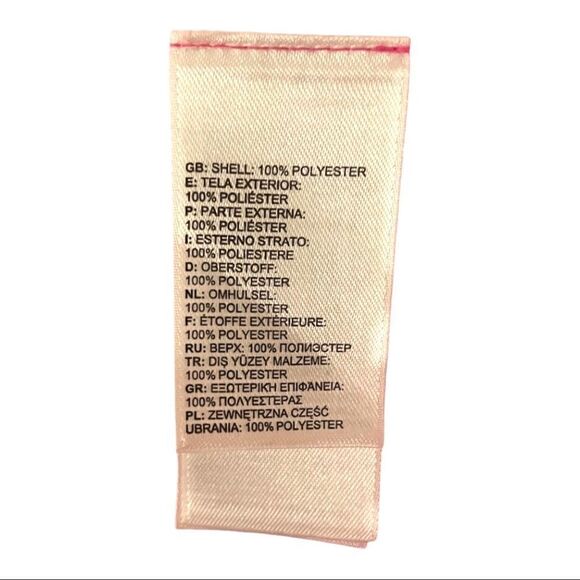 GB: SHELL: 100% POLYESTER
E: TELA EXTERIOR:
100% POLIÉSTER
P: PARTE EXTERNA:
100% POLIÉSTER
I: ESTERNO STRATO:
100% POLIESTERE
D: OBERSTOFF:
100% POLYESTER
NL: OMHULSEL:
100% POLYESTER
F: ÉTOFFE EXTÉRIEURE:
100% POLYESTER
RU: ВЕРХ: 100% ПОЛИЭСТЕР
TR: DIŞ YÜZEY MALZEME:
100% POLYESTER
GR: ΕΞΩΤΕΡΙΚΉ ΕΠΙΦΆΝΕΙΑ:
100% ΠΟΛΥΕΣΤΕΡΑΣ
PL: ZEWNĘTRZNA CZĘŚĆ
UBRANIA: 100% POLYESTER